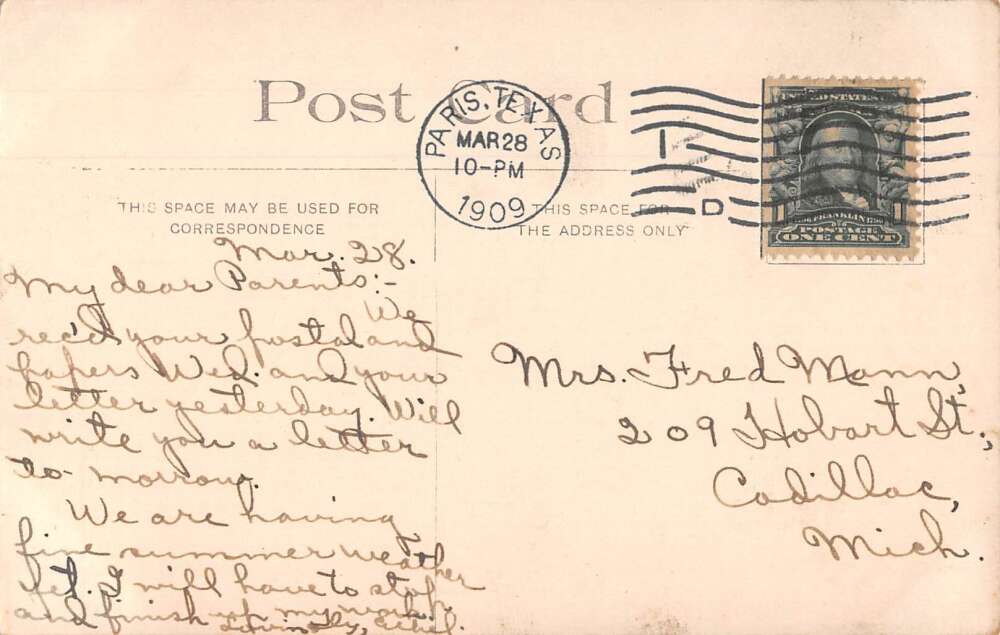 Post Card
PARIS, TEXAS
MAR 28
10-PM
1909
1
D
UNITED STATES
FRANKLIN
1 1
POSTAGE
ONE CENT
THIS SPACE MAY BE USED FOR
CORRESPONDENCE
THIS SPACE FOR
THE ADDRESS ONLY
Mar. 28.
My dear Parents:-
We
rec'd your postal and
papers Wed. and your
letter yesterday. Will
write you a letter
to-morrow.
We are having
fine summer weather
yet. I will have to stop
and finish up my work
Lovingly, Ethel.
Mrs. Fred Mann,
209 Hobart St.,
Cadillac,
Mich.